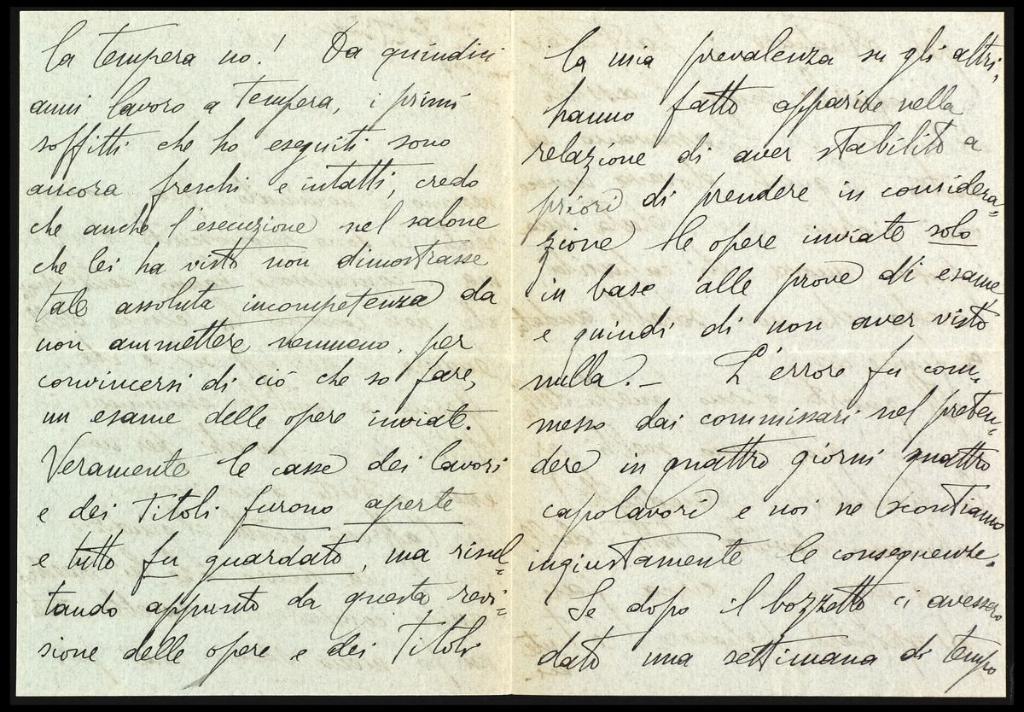 la tempera no! Da quindici
anni lavoro a tempera, i primi
soffitti che ho eseguiti sono
ancora freschi e intatti, credo
che anche l'esecuzione nel salone
che lei ha visto non dimostrasse
tale assoluta incompetenza da
non ammettere nemmeno, per
convincersi di ciò che so fare,
un esame delle opere inviate.
Veramente le casse dei lavori
e dei Titoli furono aperte
e tutto fu guardato, ma risul=
tando appunto da questa revi=
sione delle opere e dei Titoli
la mia prevalenza su gli altri,
hanno fatto apparire nella
relazione di aver stabilito a
priori di prendere in considera=
zione le opere inviate solo
in base alle prove di esame
e quindi di non aver visto
nulla. _ L'errore fu com=
messo dai commissari nel preten=
dere in quattro giorni quattro
capolavori e noi ne scontiamo
ingiustamente le conseguenze.
Se dopo il bozzetto ci avessero
dato una settimana di tempo